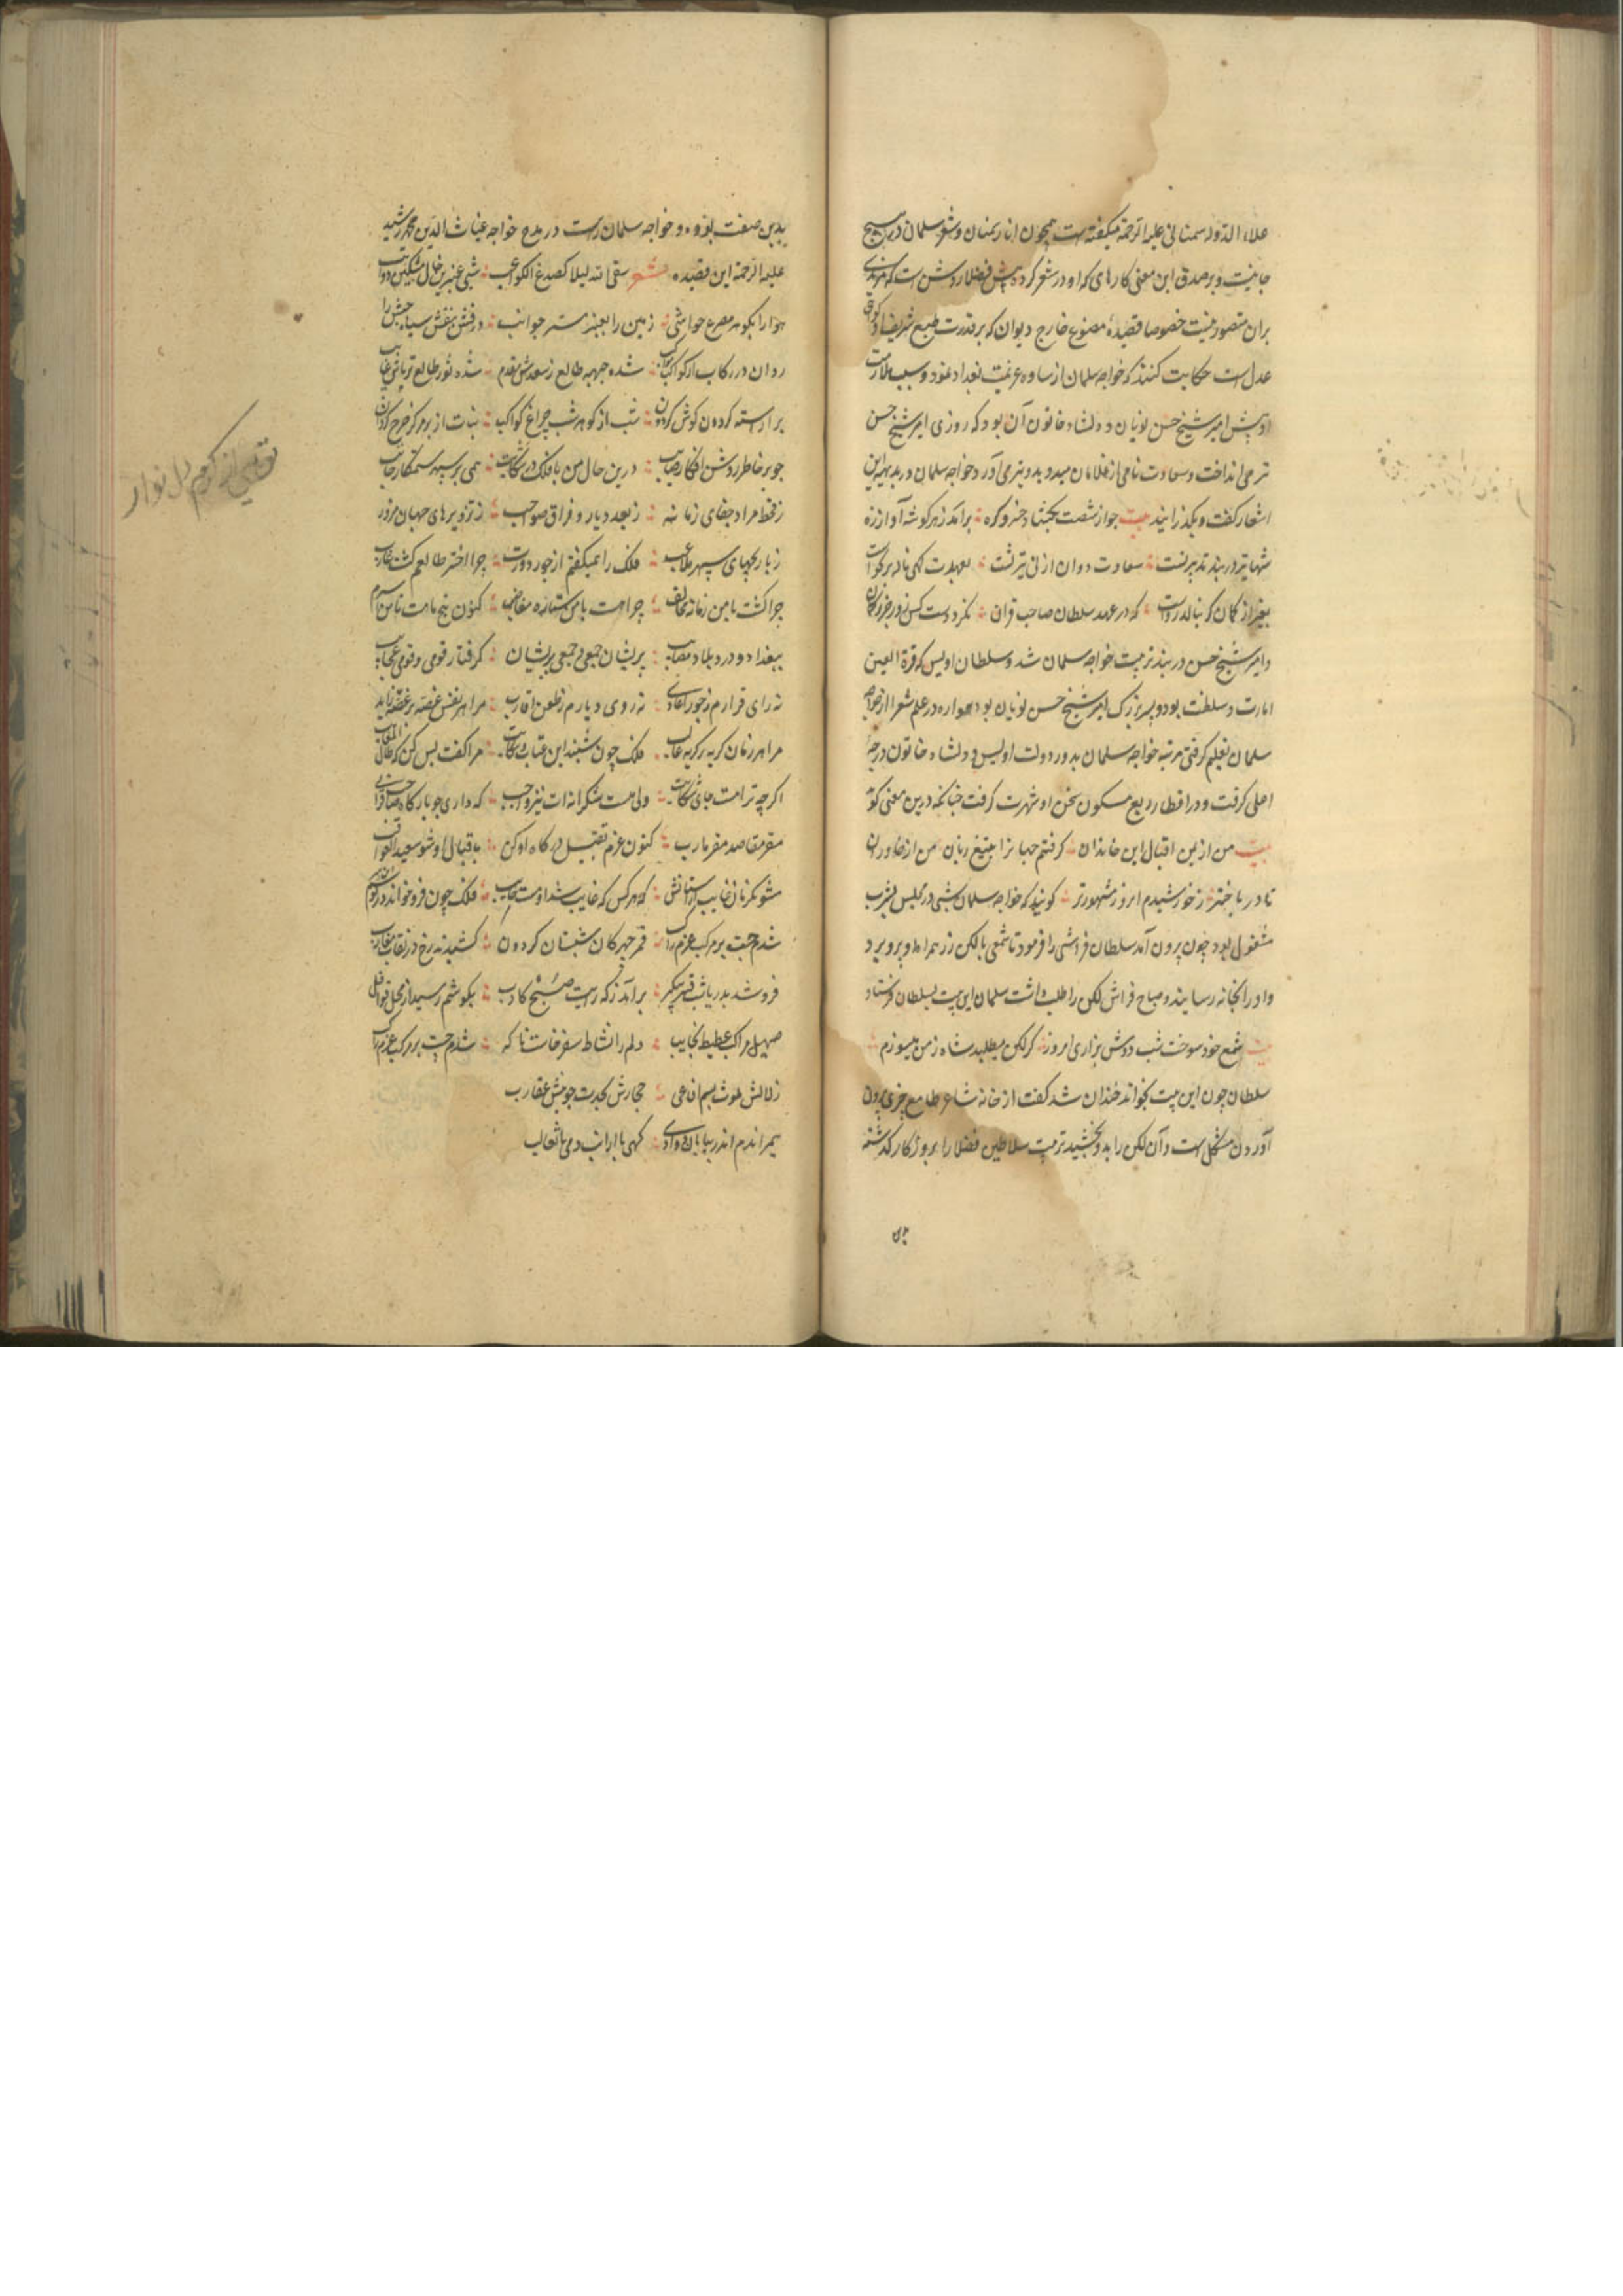 علاء الدوله سمنانی علیه الرحمة میگفته است همچون انار سمنان و شعر سلمان در هیچ
جا نیست و بر صدق این معنی کارهای که او در شعر کرده پیش فضلا روشن است که مزیدی
بران متصور نیست خصوصا قصیده مصنوع خارج دیوان که بر قدرت طبع شریف او کواهی
عدل است حکایت کنند که خواجه سلمان از ساوه عزیمت بغداد نمود و سبب ملازمت
او پیش امیر شیخ حسن نویان و دلشاد خاتون آن بود که روزی امیر شیخ حسن
تیر می انداخت و سعادت نامی از غلامان میدوید و تیر می آورد خواجه سلمان در بدیهه این
اشعار کفت و بگذرانید بیت جو از شصت بکشاد خسرو کره برآمد ز هر کوشه آواز زه
شها تیر در بند تدبیر تست سعادت دوان از پی تیر تست بعهدت کسی ناله بر نخواست
بغیر از کمان کر بنالد رواست که در عهد سلطان صاحب قران نکردست کس زور جز بر کمان
و امیر شیخ حسن در بند تربیت خواجه سلمان شد و سلطان اویس که قرة العین
امارت و سلطنت بود و پسر بزرک امیر شیخ حسن نویان بود همواره در علم شعر از خواجه
سلمان تعلیم کرفتی مرتبه خواجه سلمان بدور دولت اویس و دلشاد خاتون درجه
اعلی کرفت و در اقطار ربع مسکون سخن او شهرت کرفت جنانکه درین معنی کوید
بیت من از یمن اقبال این خاندان کرفتم جهانرا بتیغ زبان من از خاوران
تا در باختر ز خورشیدم امروز مشهورتر کویند که خواجه سلمان شبی در مجلس بشرب
مشغول بود چون بیرون آمد سلطان فراشی را فرمود تا شمعی با لکن زر همراه او بیرون برد
و او را بخانه رسانید و صباح فراش لکن را طلب داشت سلمان این بیت بسلطان فرستاد
بیت شمع خود سوخت شب دوش بزاری امروز کر لکن میطلبد شاه ز من میسوزم
سلطان چون این بیت بخواند خندان شد کفت از خانه شاعر طامع چیزی بیرون
آوردن مشکل است و آن لکن را بدو بخشید تربیت سلاطین فضلا را بروزکار کذشته
بدین صفت بوده و خواجه سلمان راست در مدح خواجه غیاث الدین محمد رشید
علیه الرحمة این قصیده شعر سقی الله لیلا کصدغ الکواعب شبی عنبرین خال مشکین ذوائب
هوا را بکوهر مرصع حواشی زمین را بعنبر مستر جوانب درفش بنفش سپاه حبش را
روان در رکاب از کواکب مواکب شده جبهه طالع ز سعدش مقدم شده نور طالع ثریا نی غایب
بر آراسته کردون کوش کردون شب از کوهر شب چراغ کواکب بنات از بر مرکز جرخ کردان
جو بر خاطر روشن افکار صایب درین حال من با فلک در شکایت همی بر سپهر ستمکار عاتب
ز قحط مراد جفای زمانه ز بعد دیار و فراق صواحب ز تزویرهای جهان مزور
ز بازیچهای سپهر ملاعب فلک را همیکفتم از جور دورت چرا اختر طالعم کشت غارب
چرا کشت با من زمانه مخالف چرا هست با من ستاره مغاضب کنون پنج ماهست تا من اسیرم
ببغداد در درد بلا و مصایب پریشان جمعی و جمعی پریشان کرفتار قومی و قومی عجایب
نه رای قرارم ز جور اعادی نه روی دیارم ز طعن اقارب مرا هر نفس غصه بر غصه زاید
مرا هر زمان کریه بر کریه غالب فلک چون شنید این عتاب و شکایت مرا کفت بس کن که طال المعاتب
اکرچه ترا هست جای شکایت ولی هست شکرانه ات نیز واجب که داری جو بارکاه صاحب قرانی
مقر مقاصد مفر مآرب کنون عزم تقبیل درکاه او کن باقبال او شو سعید العواقب
مشو یکزمان غایب از آستانش که هر کس که غایب شد اوست خایب فلک چون فرو خواند در کوشم
شدم جست بر مرکب عزم راکب قمر جهرکان شبستان کردون کشیدند رخ در نقاب مغارب
فرو شد بدریا شب قیر پیکر برآمد ز که رایت صبح کاذب بکوشم رسید از محل قوافل
صهیل مراکب غطیط نجایب دلم را نشاط سفر خاست ناکه شدم جست بر مرکب عزم راکب
زلالش ملوث بسم افاعی حجارش محدب جو نیش عقارب
همیراندم اندر بیابان و وادی کهی با ارانب دمی با ثعالب